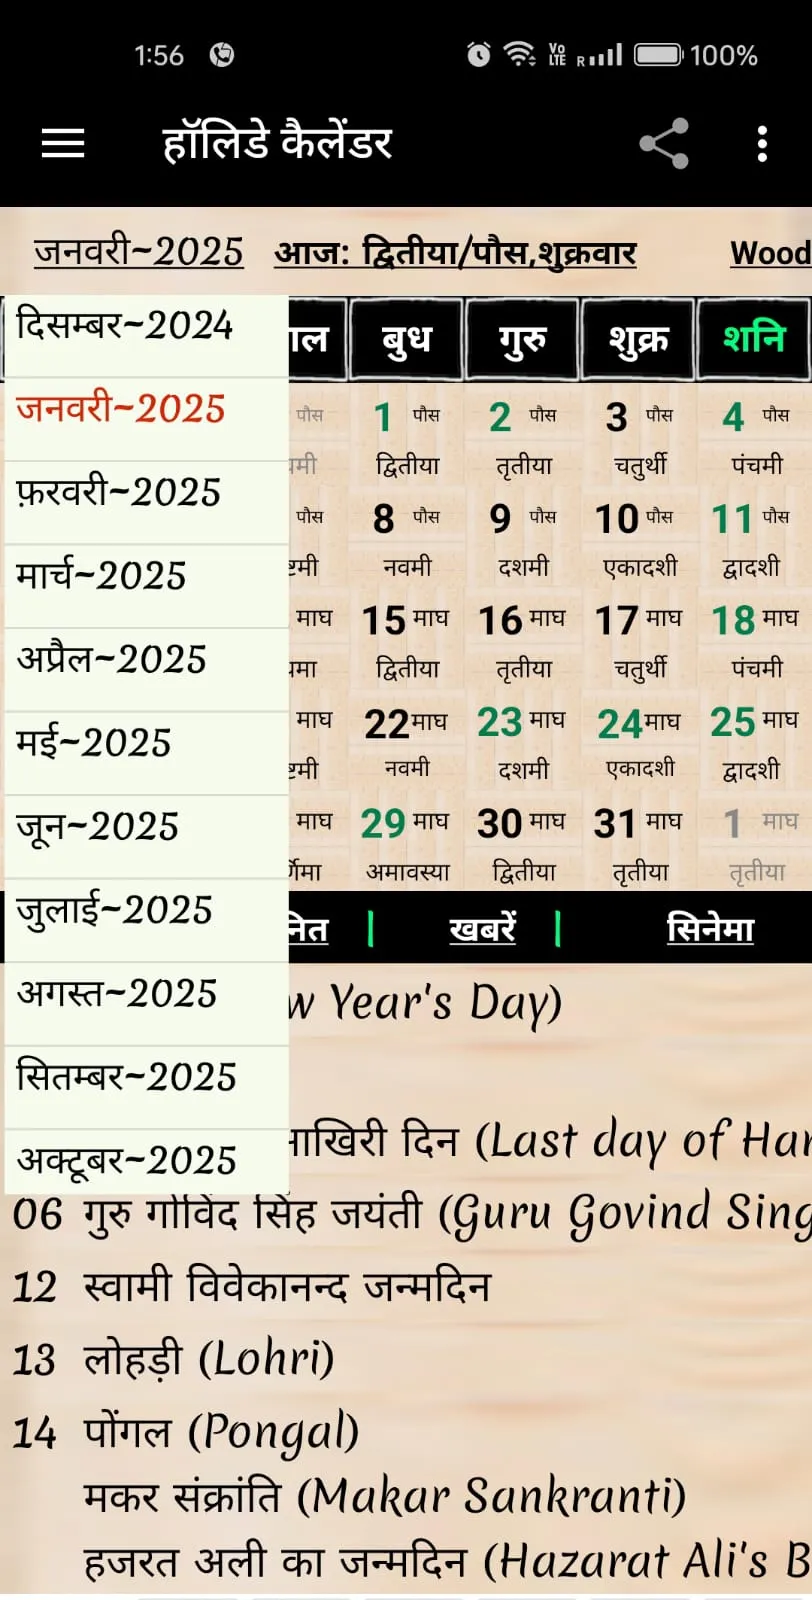 1:56 Vo LTE R 100%
हॉलिडे कैलेंडर
जनवरी~2025 आज: द्वितीया/पौस,शुक्रवार Wood
दिसम्बर~2024
जनवरी~2025
फ़रवरी~2025
मार्च~2025
अप्रैल~2025
मई~2025
जून~2025
जुलाई~2025
अगस्त~2025
सितम्बर~2025
अक्टूबर~2025
बुध गुरु शुक्र शनि
पौस 1 पौस 2 पौस 3 पौस 4 पौस
द्वितीया तृतीया चतुर्थी पंचमी
पौस 8 पौस 9 पौस 10 पौस 11 पौस
नवमी दशमी एकादशी द्वादशी
माघ 15 माघ 16 माघ 17 माघ 18 माघ
द्वितीया तृतीया चतुर्थी पंचमी
माघ 22 माघ 23 माघ 24 माघ 25 माघ
नवमी दशमी एकादशी द्वादशी
माघ 29 माघ 30 माघ 31 माघ 1 माघ
अमावस्या द्वितीया तृतीया तृतीया
| खबरें | सिनेमा
Year's Day)
दिन (Last day of Har
06 गुरु गोविंद सिंह जयंती (Guru Govind Sing
12 स्वामी विवेकानन्द जन्मदिन
13 लोहड़ी (Lohri)
14 पोंगल (Pongal)
मकर संक्रांति (Makar Sankranti)
हजरत अली का जन्मदिन (Hazarat Ali's B